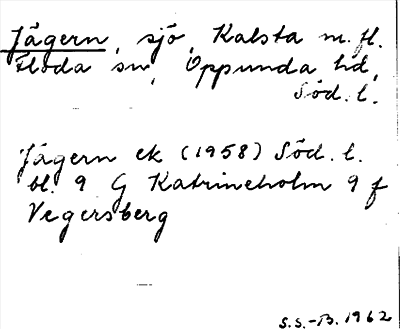 Jägern, sjö, Kalsta m. fl.
Floda sn, Oppunda hd,
Söd. l.
Jägern ek (1958) Söd. l.
bl. 9 G Katrineholm 9 f
Vegersberg
S.S.-B. 1962